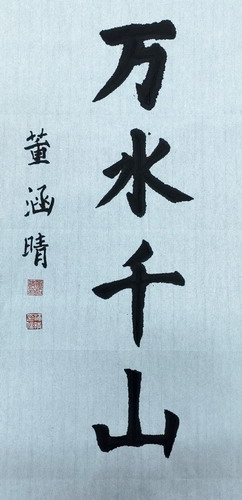 万水千山
董涵晴